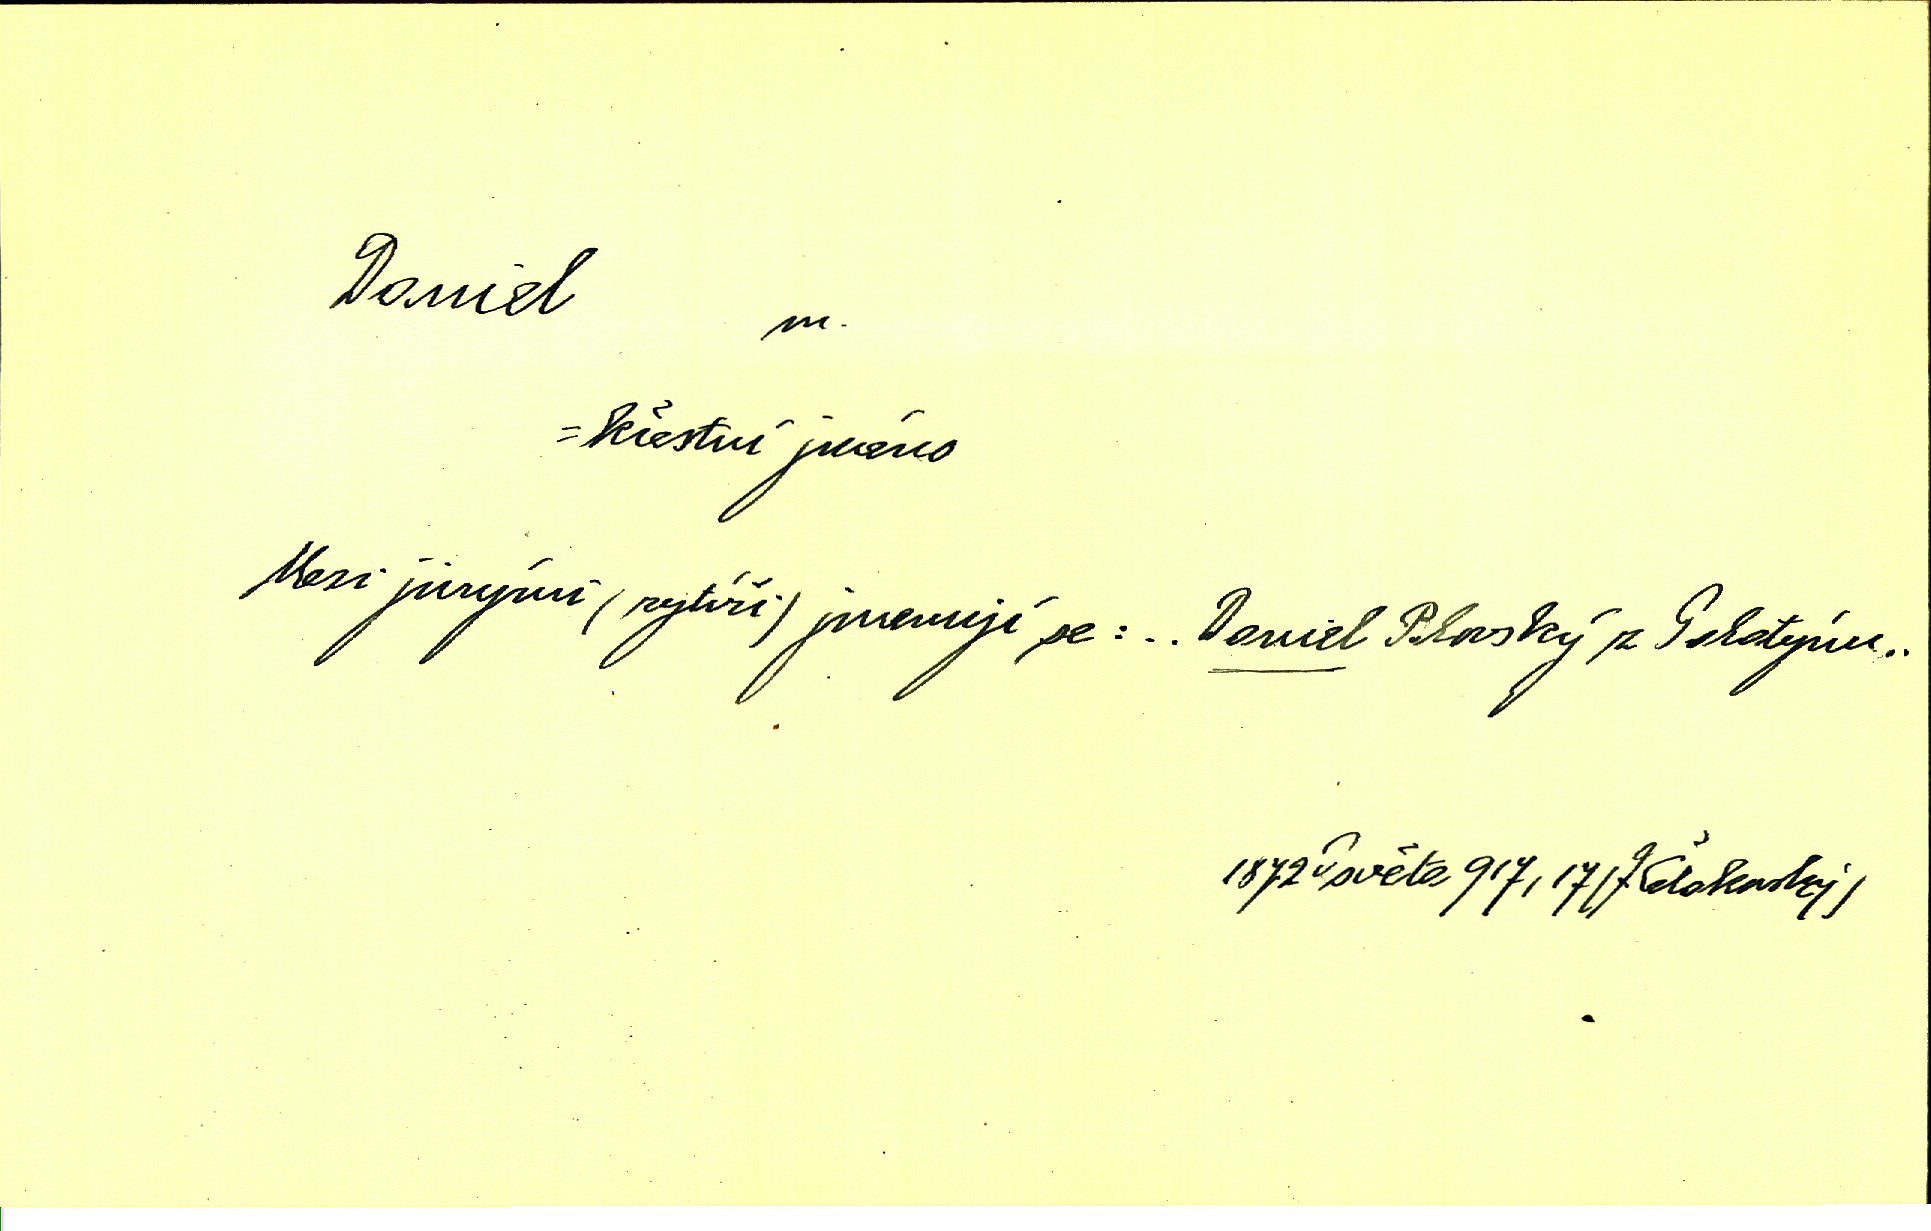 Daniel
m.
= křestní jméno
Mezi jinými (rytíři) jmenují se : .. Daniel z ..
1872 Osvěta 917, 17 (J Čelakovský)